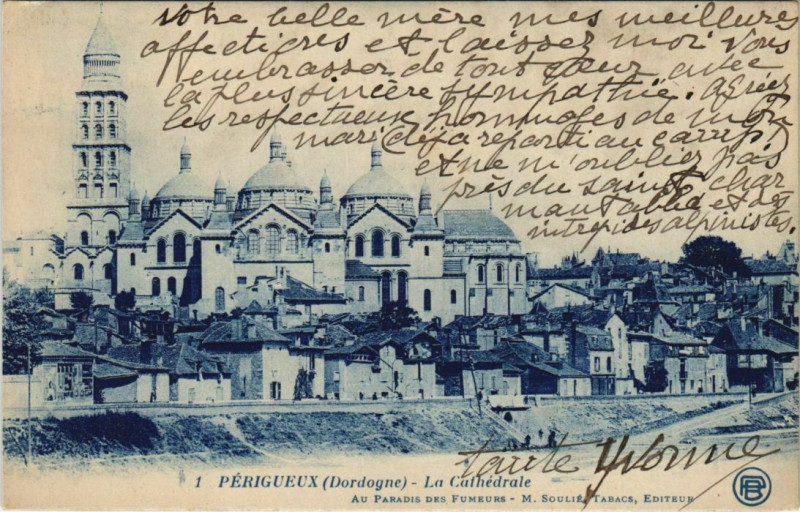 votre belle mère mes meilleures
affections et laissez moi vous
embrasser de tout cœur avec
la plus sincère sympathie. Agréez
les respectueux hommages de mon
mari déjà reparti au camp,
et ne m'oubliez pas
près du saint, char
mant abbé et des
intrepides alpinistes.
tante Yvonne
1 PÉRIGUEUX (Dordogne) - La Cathédrale
AU PARADIS DES FUMEURS - M. SOULIÉ, TABACS, EDITEUR
PB